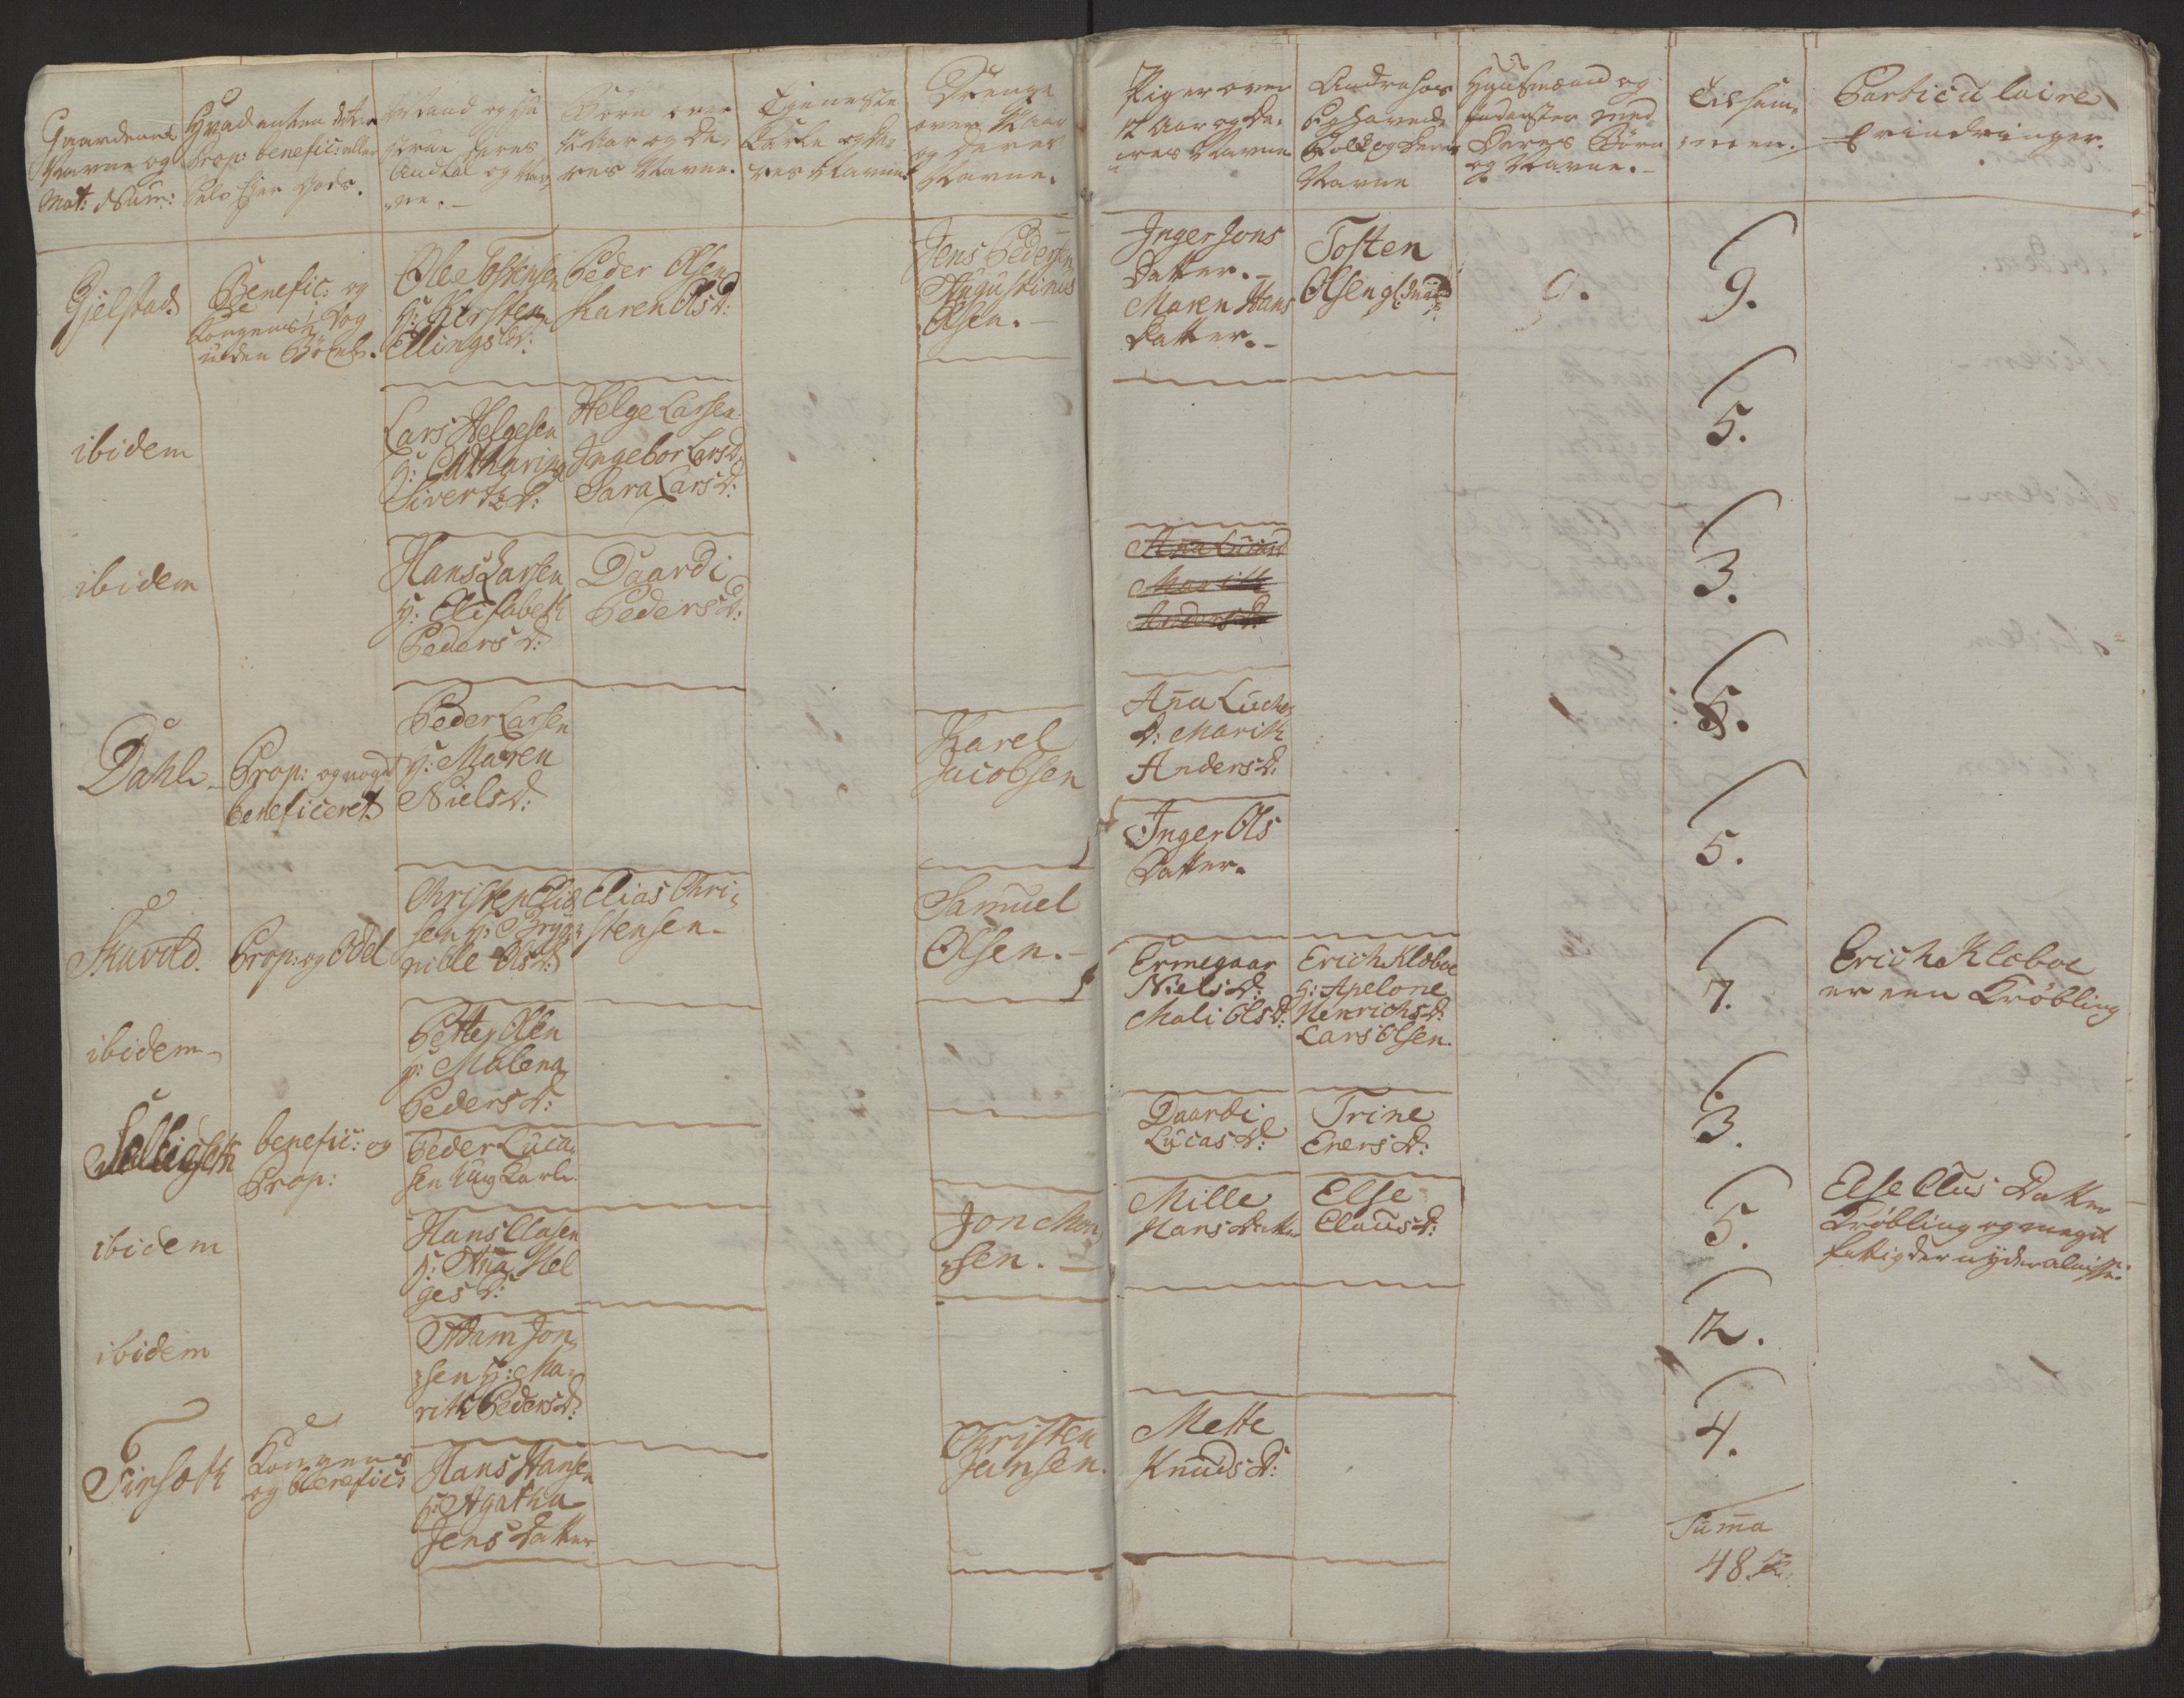 Gaardenes
Navne og
Mat: Num:
Hvad enten det er
Prop: benefic: eller
Selv Ejer Gods.
Mand og Hu
strue deres
Andtal og Nav
ne.-
Börn over
12 Aar og de,
res Navne.
Tieneste
Karle og de,
res Navne
Drenge
over 12 Aar
og deres
Navne.
Piger over
12 Aar og de,
res Navne
Andre hos
Sig havende
Folk og deres
Navne
Huusmænd og
Inderster med
Deres Börn
og Navne.-
Tilsam,
men.
Particulaire
Erindringer.
Gjelstad
Benefic: og
Kongens
uden Böxel.
Olle Tostensen
H: Kirsten
Ellings D:
Peder Olsen
Karen Ols D:
Jens Pedersen
Augustinus
Olsen.-
Inger Jons
Datter.-
Maren Hans
Datter.-
Tosten
Olsen
9.
9.
ibidem
Lars Helgesen
H: Catharina
Sivertz D:
Helge Larsen
Ingebor Lars D:
Sara Lars D:
5.
ibidem
Hans Larsen
H: Elisabeth
Peders D:
Daardi
Peders D:
Ana Lucas D
Marith
Anders D:
3.
Dahl
Prop: og noget
beneficeret
Peder Larsen
H: Maren
Niels D:
Karel
Jacobsen
Aña Luchas
D: Marith
Anders D:
5.
Skuvold.
Prop: og Odel
Christen Elia
sen H: Bryn
nille Ols D:
Elias Chri,
stensen.
Samuel
Olsen.-
Inger Ols
Datter.
5.
ibidem
Petter Olsen
H: Malena
Peders D:
Ermegaar
Niels D:
Mali Ols D:
Erich Kloboe
H: Apelone
Henrichs D:
Lars Olsen.
7.
Erich Kloboe
er een Tröbling
benefic: og
Prop:
Peder Luca,
sen Ung Karl.
Daardi
Lucas D:
Trine
Eners D:
3.
ibidem
Hans Clasen
H: Aña Hel
ges D:
Jon Mon
sen.-
Mille
Hans Datter
Else
Claus D:
5.
Else Claus Datter
Tröbling og meget
fattig der nyder almisse.
ibidem
Adam Jon,
sen H: Ma,
rith Peders D:
2.
Finsæth
Kongens
og benefic:
Hans Hansen
H: Agatha
Jens Datter
Christen
Jensen.
Mette
Knuds D:
4.
Suma
48.